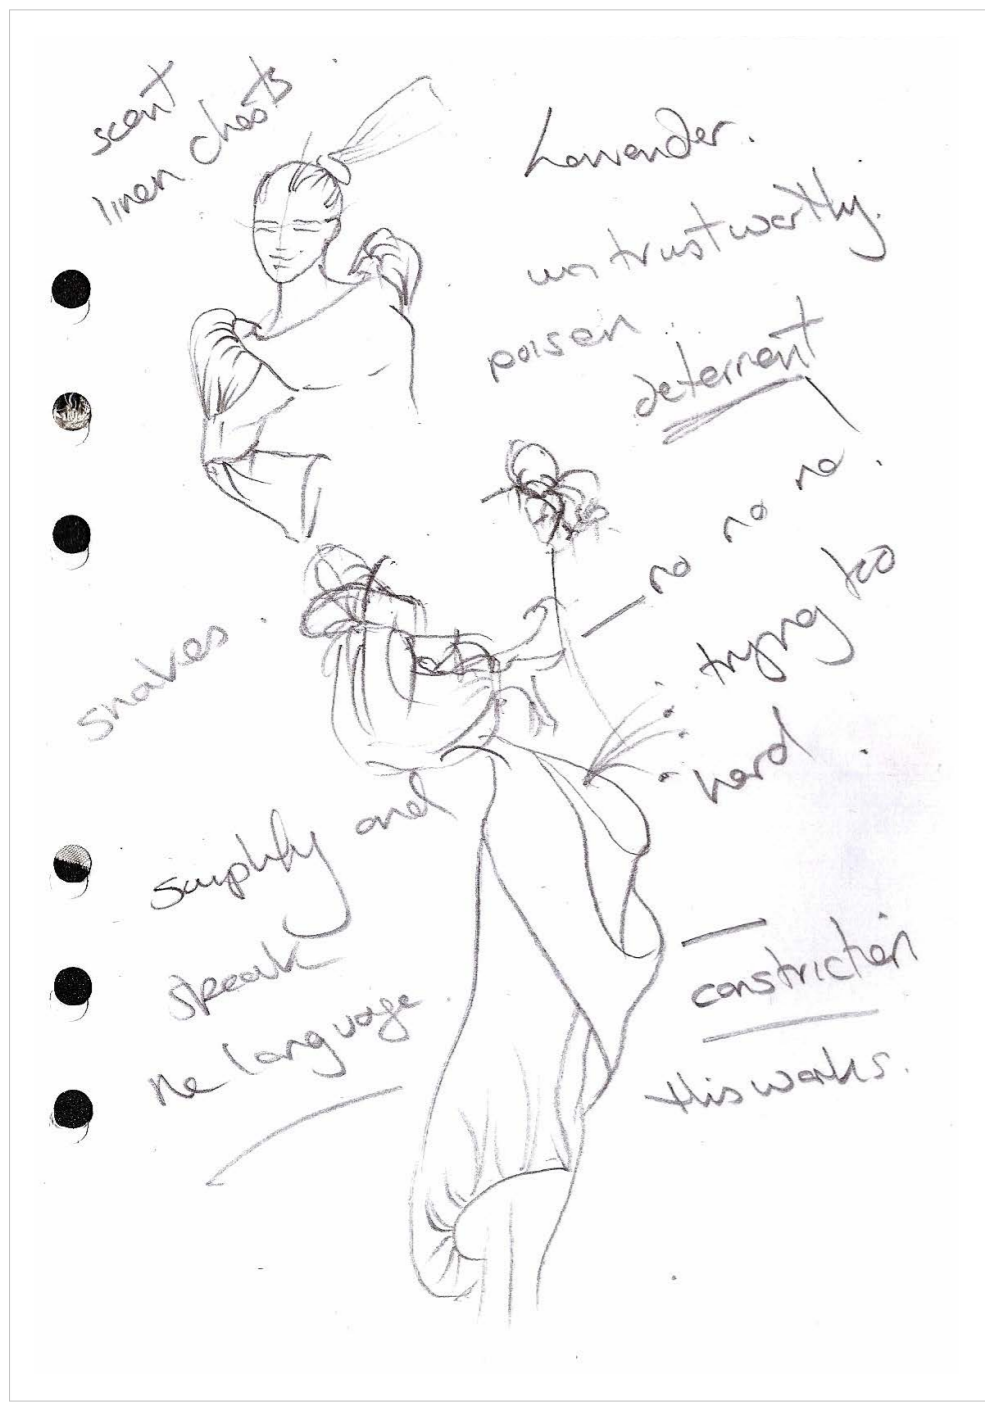 scent
linen chests
Lavander.
untrustworthy.
poisen
deterrent
no no no.
trying too
hard.
snakes.
simplify and
speak
the language.
constriction
this works.